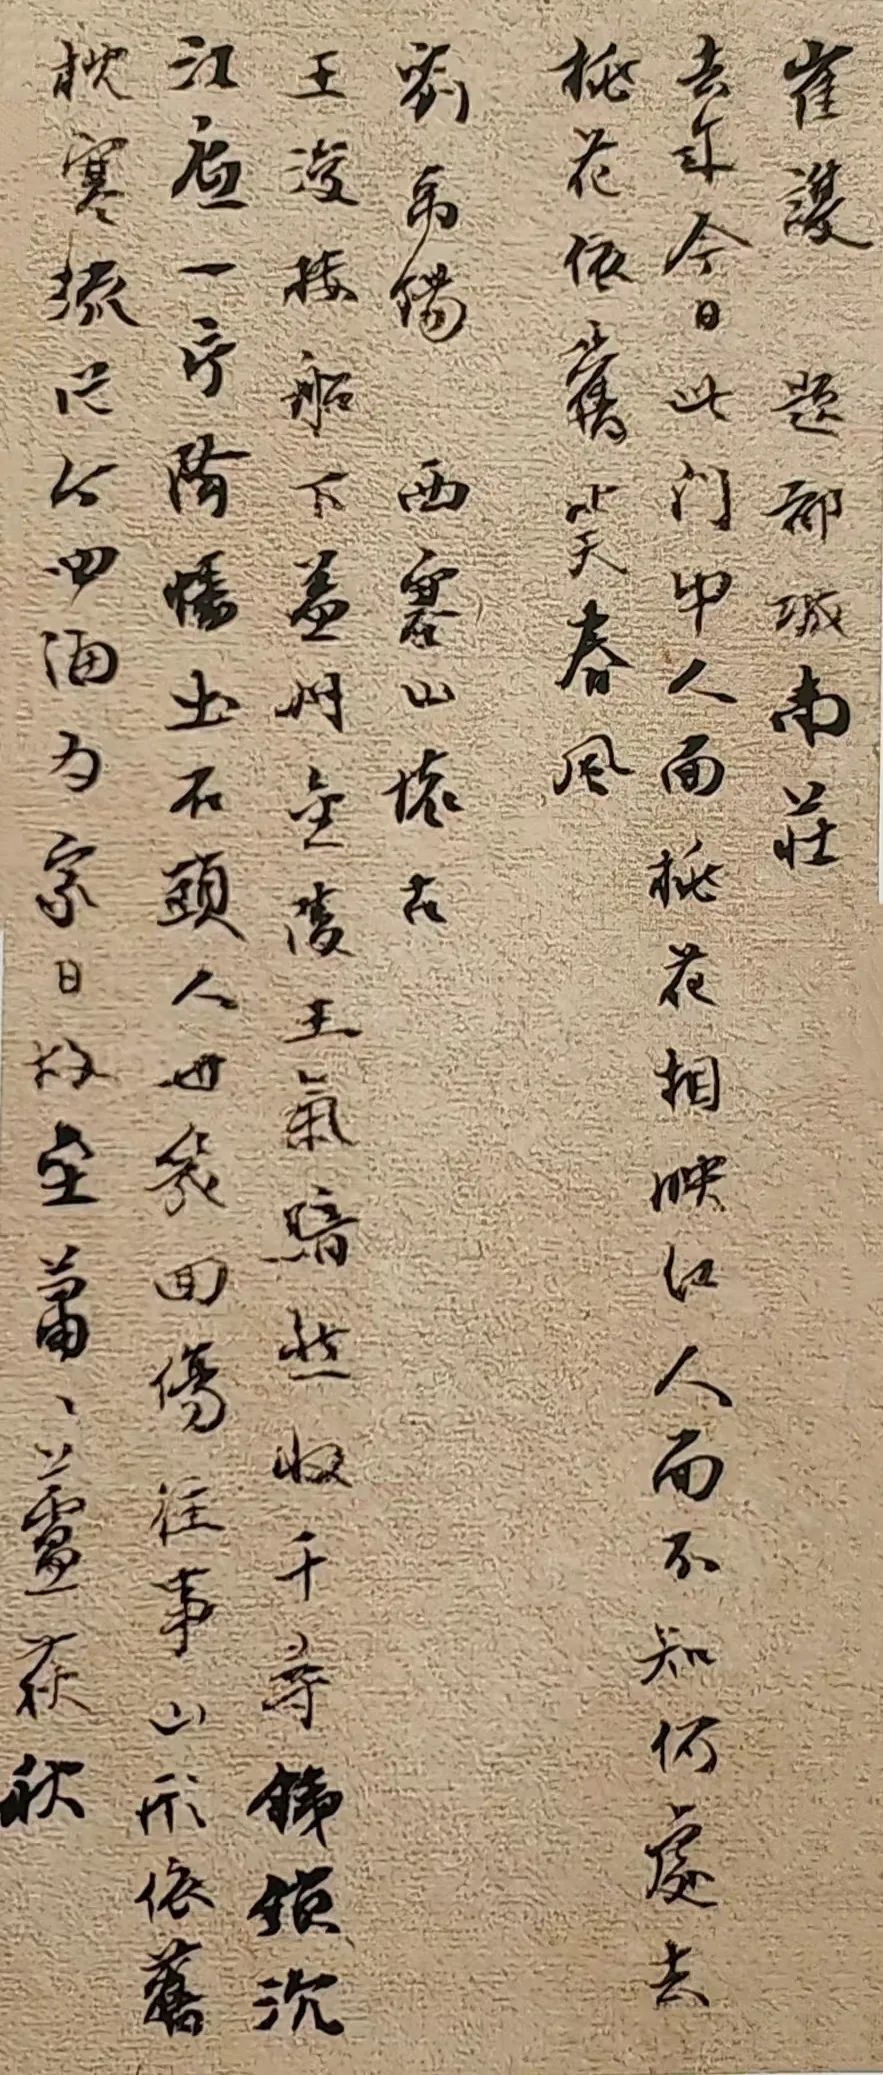 崔護 題都城南莊
去年今日此门中人面桃花相映红人面不知何處去
桃花依舊笑春風
劉禹錫 西塞山懷古
王濬樓船下益州金陵王氣黯然收千尋鐵鎖沉
江底一片降幡出石頭人世幾回傷往事山形依舊
枕寒流從今四海为家日故壘蕭〻蘆荻秋